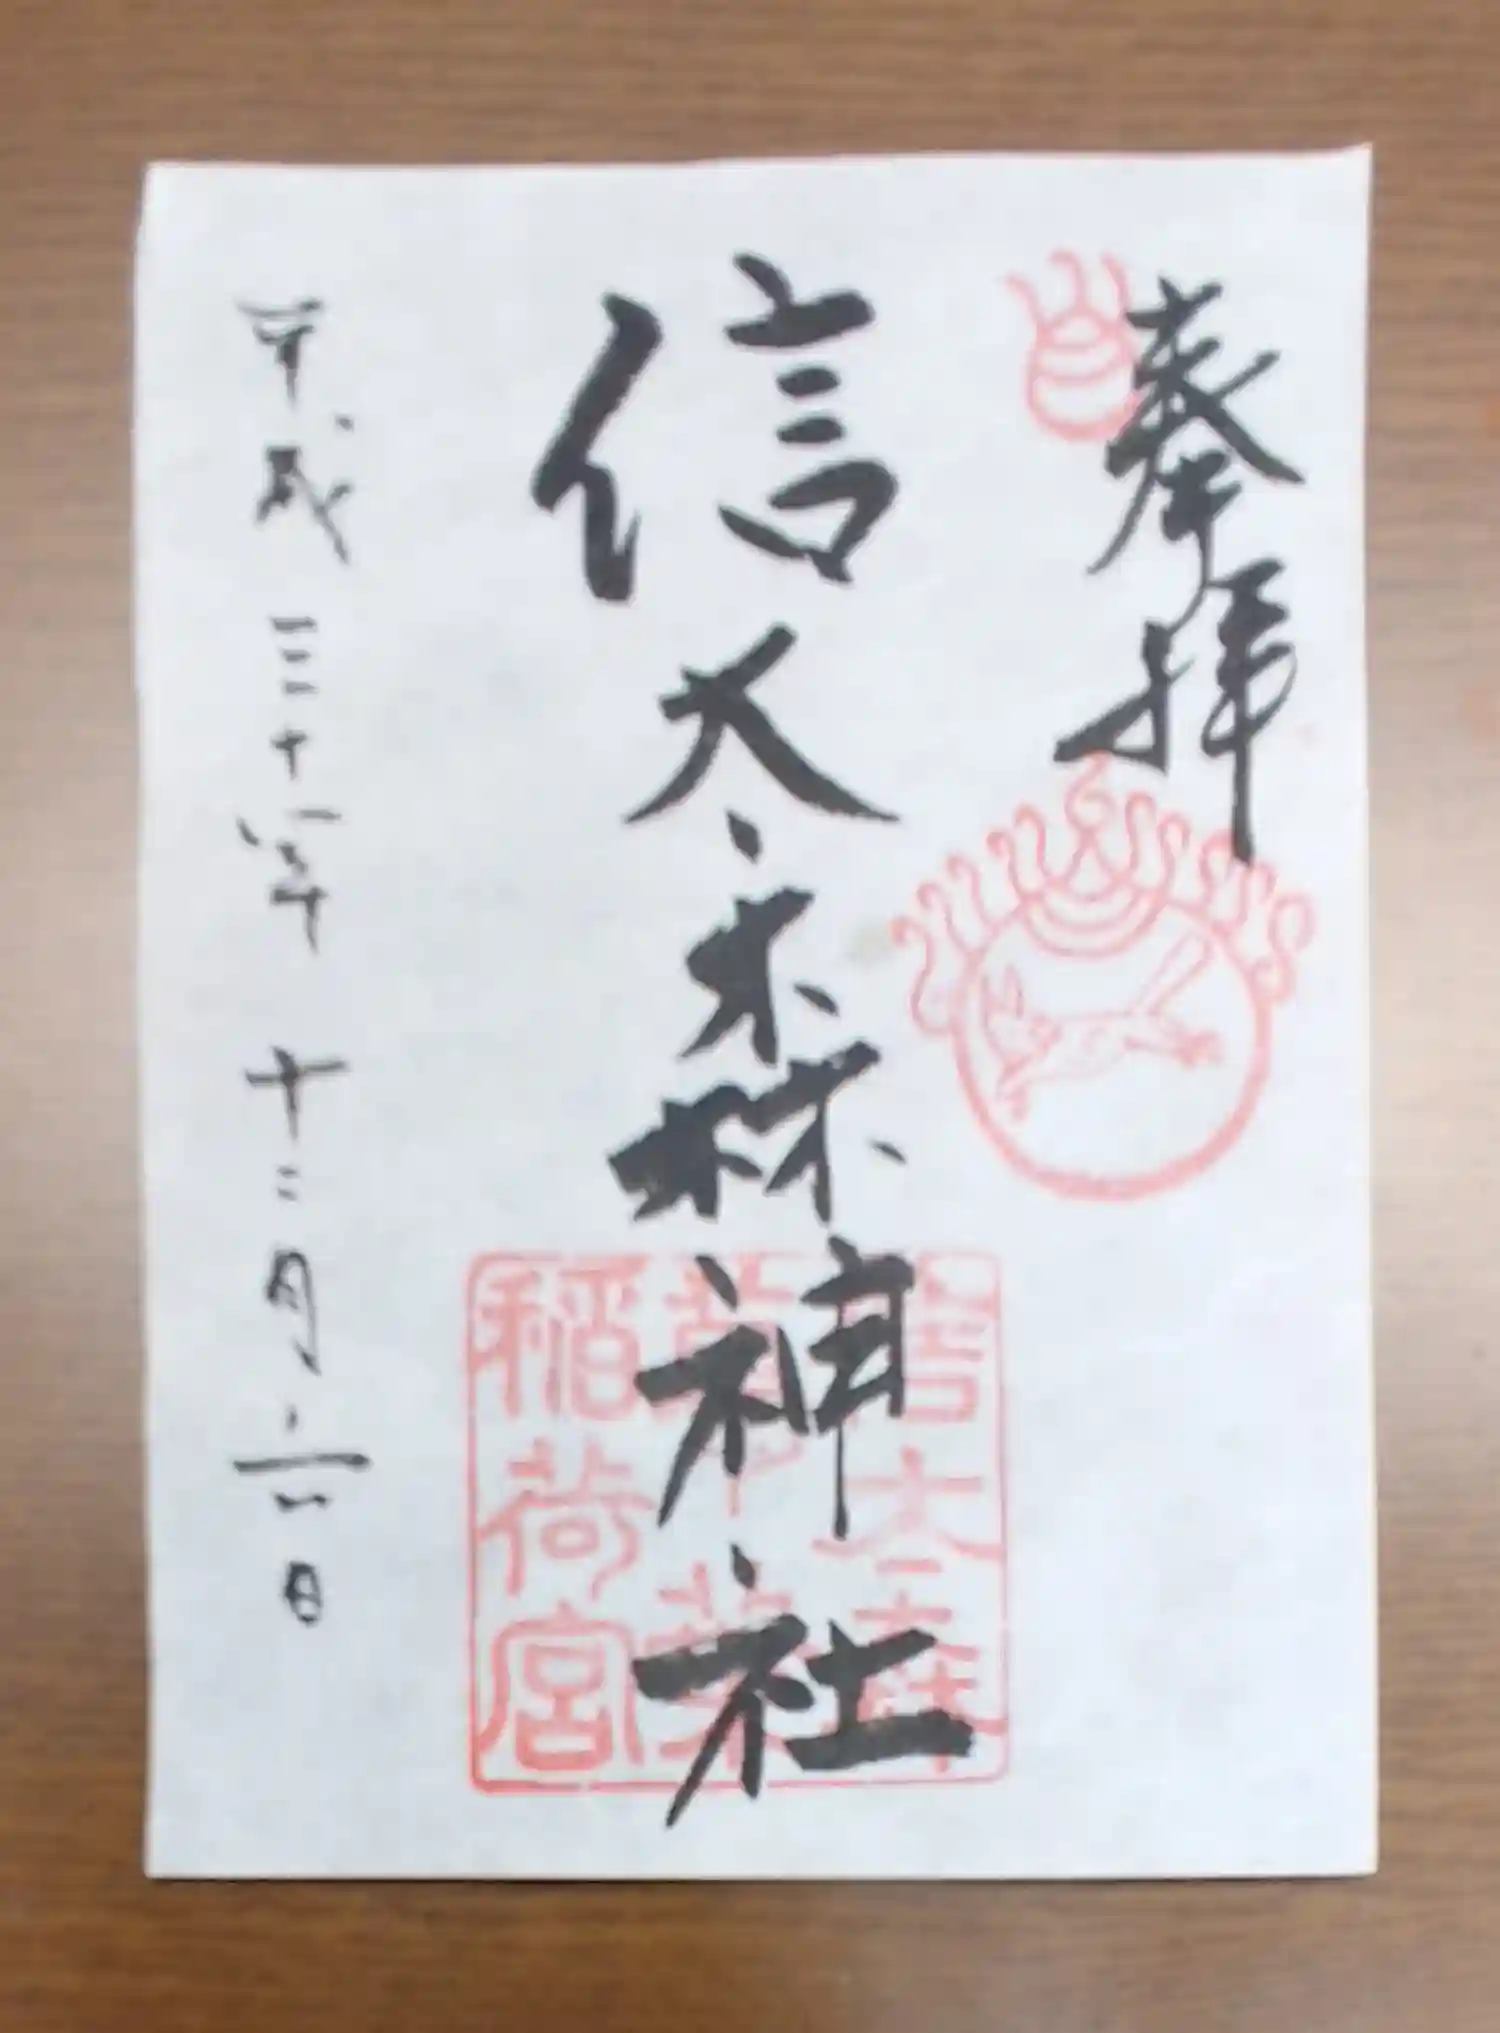 奉拝
信太森神社
信太森
葛葉
稲荷宮
平成二十八年 十二月六日